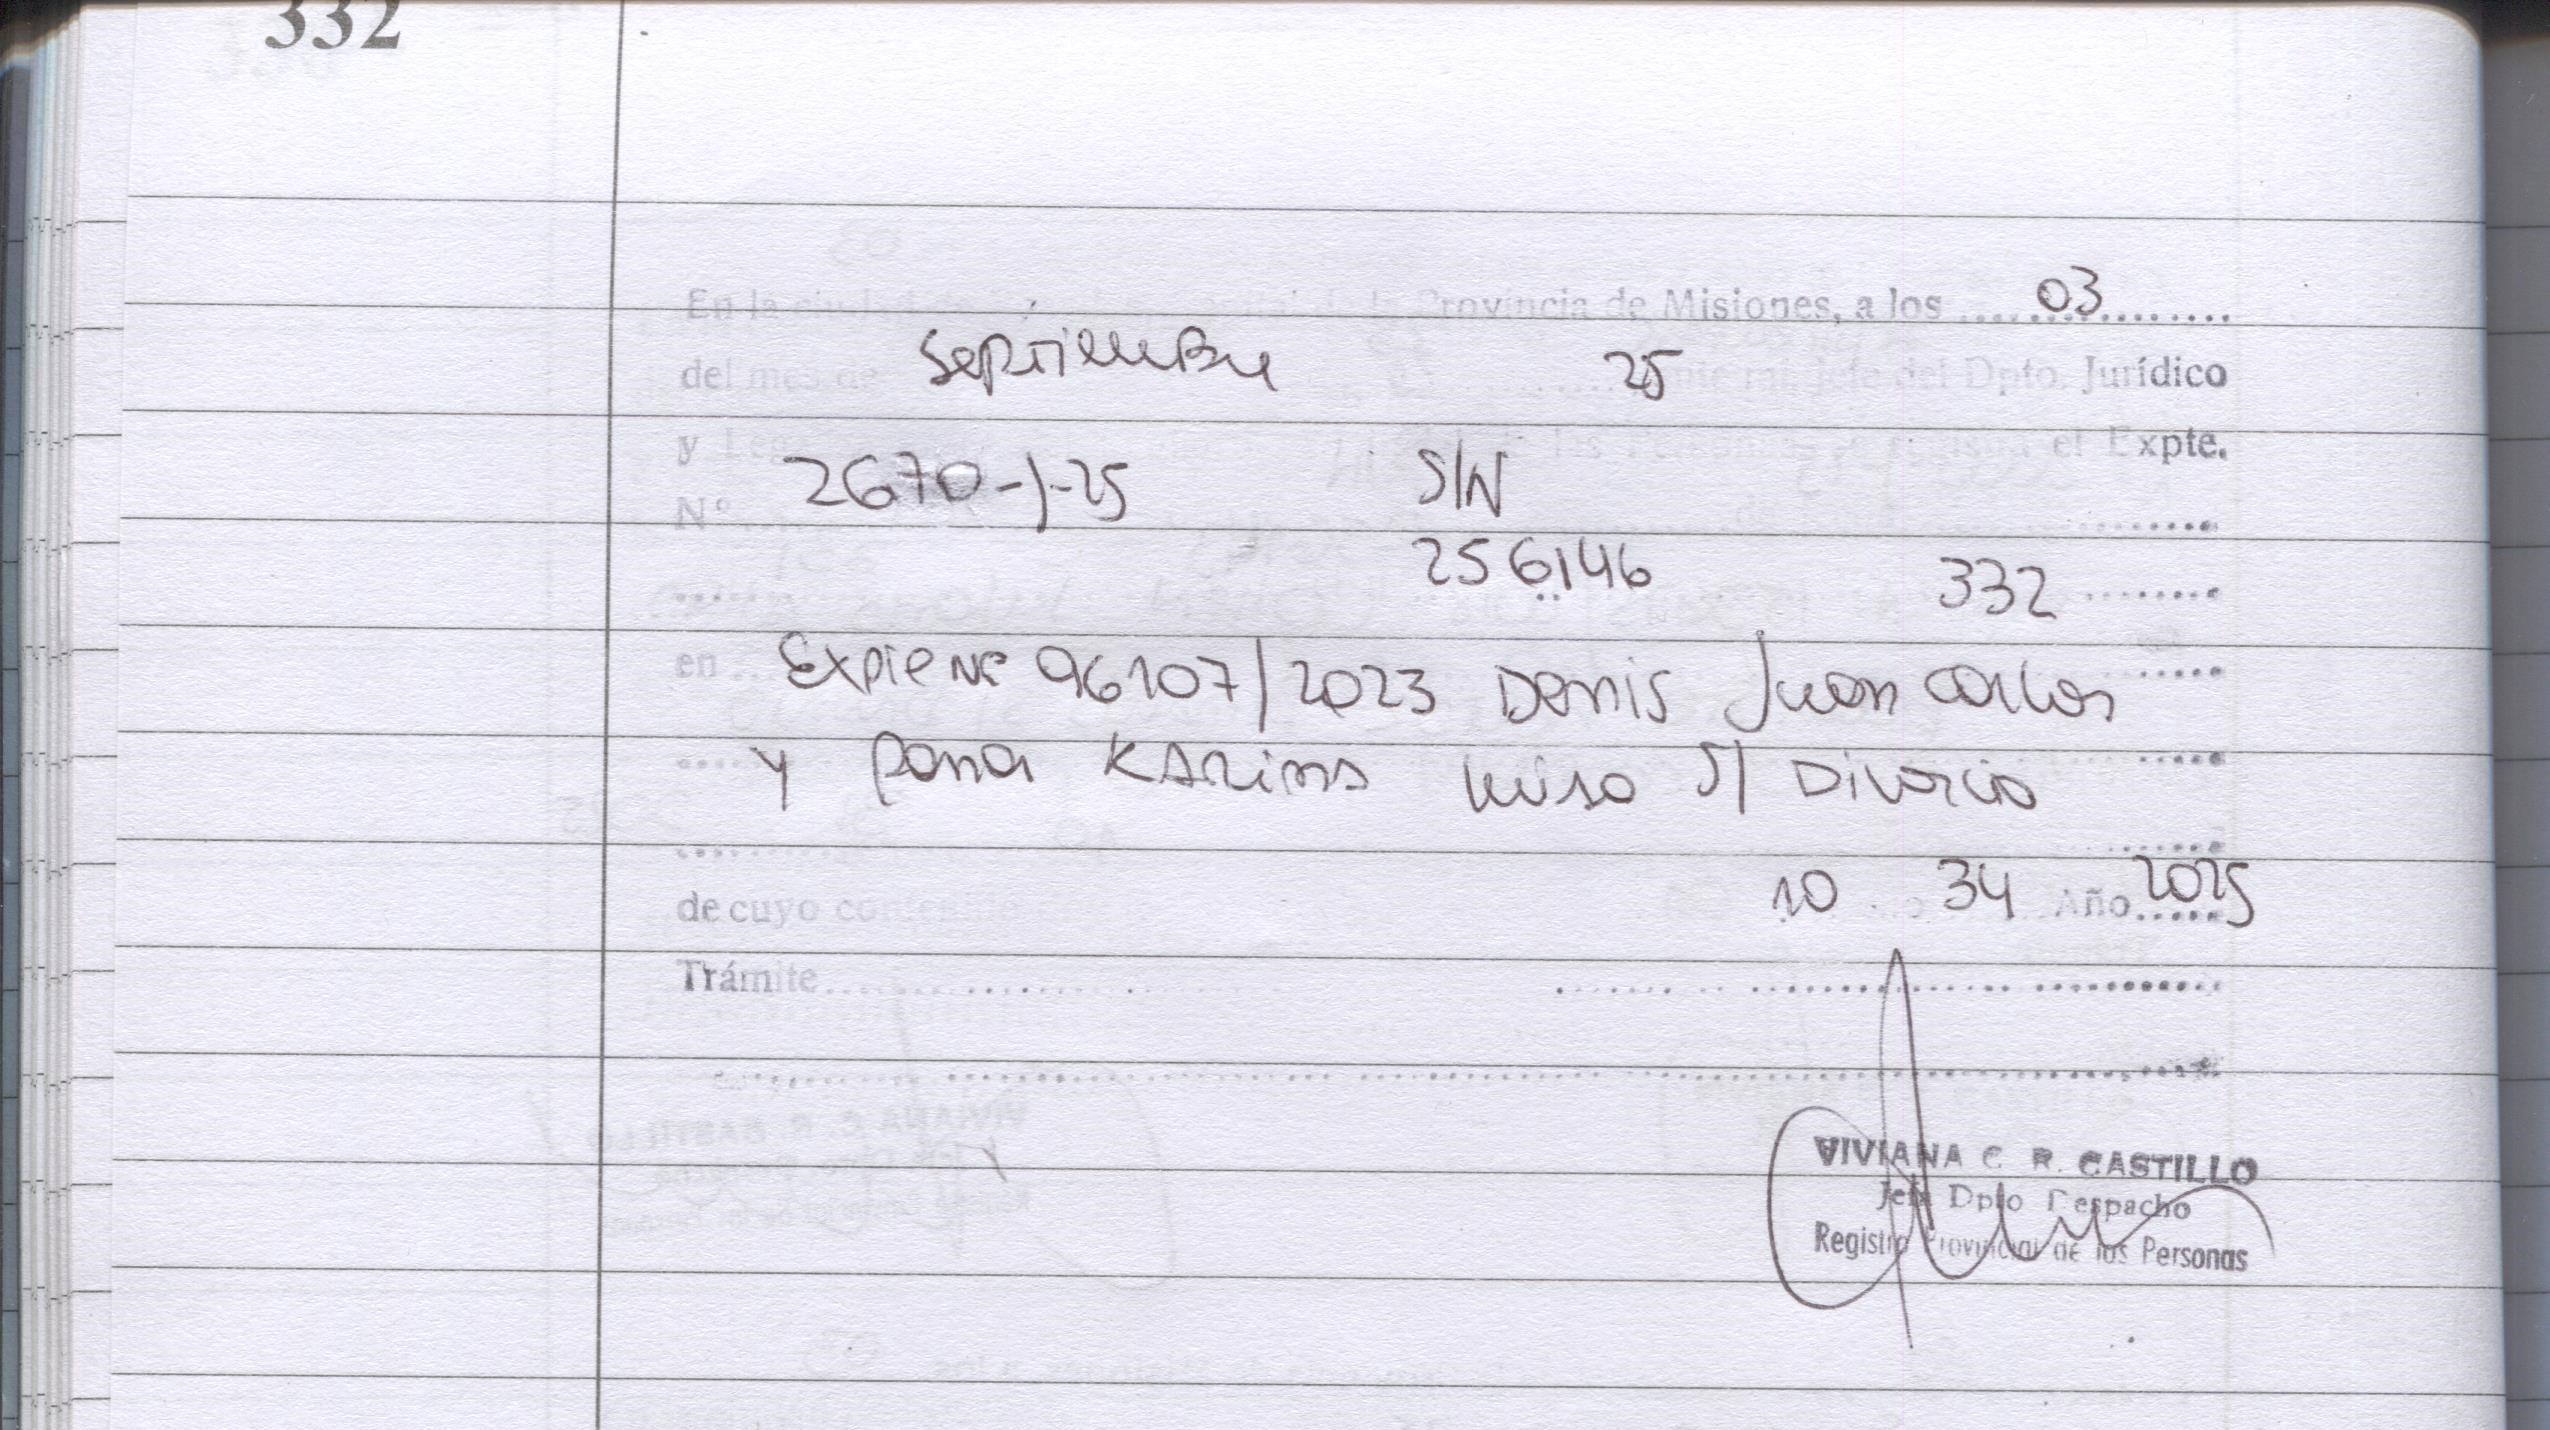 332
En la ciudad de Provincia de Misiones, a los ... 03
del mes de Septiembre 25 ante mi, jefe del Dpto. Jurídico
y Leg de las Personas el Expte.
Nº 2670-J-25 S/N
256146 332
en Expte Nº 96107/2023 Denis Juan Carlos
y Karina Luisa S/ Divorcio
de cuyo contenido 10 34 Año 2025
Trámite
VIVIANA C. R. CASTILLO
Jefa Dpto Despacho
Registro Provincial de las Personas